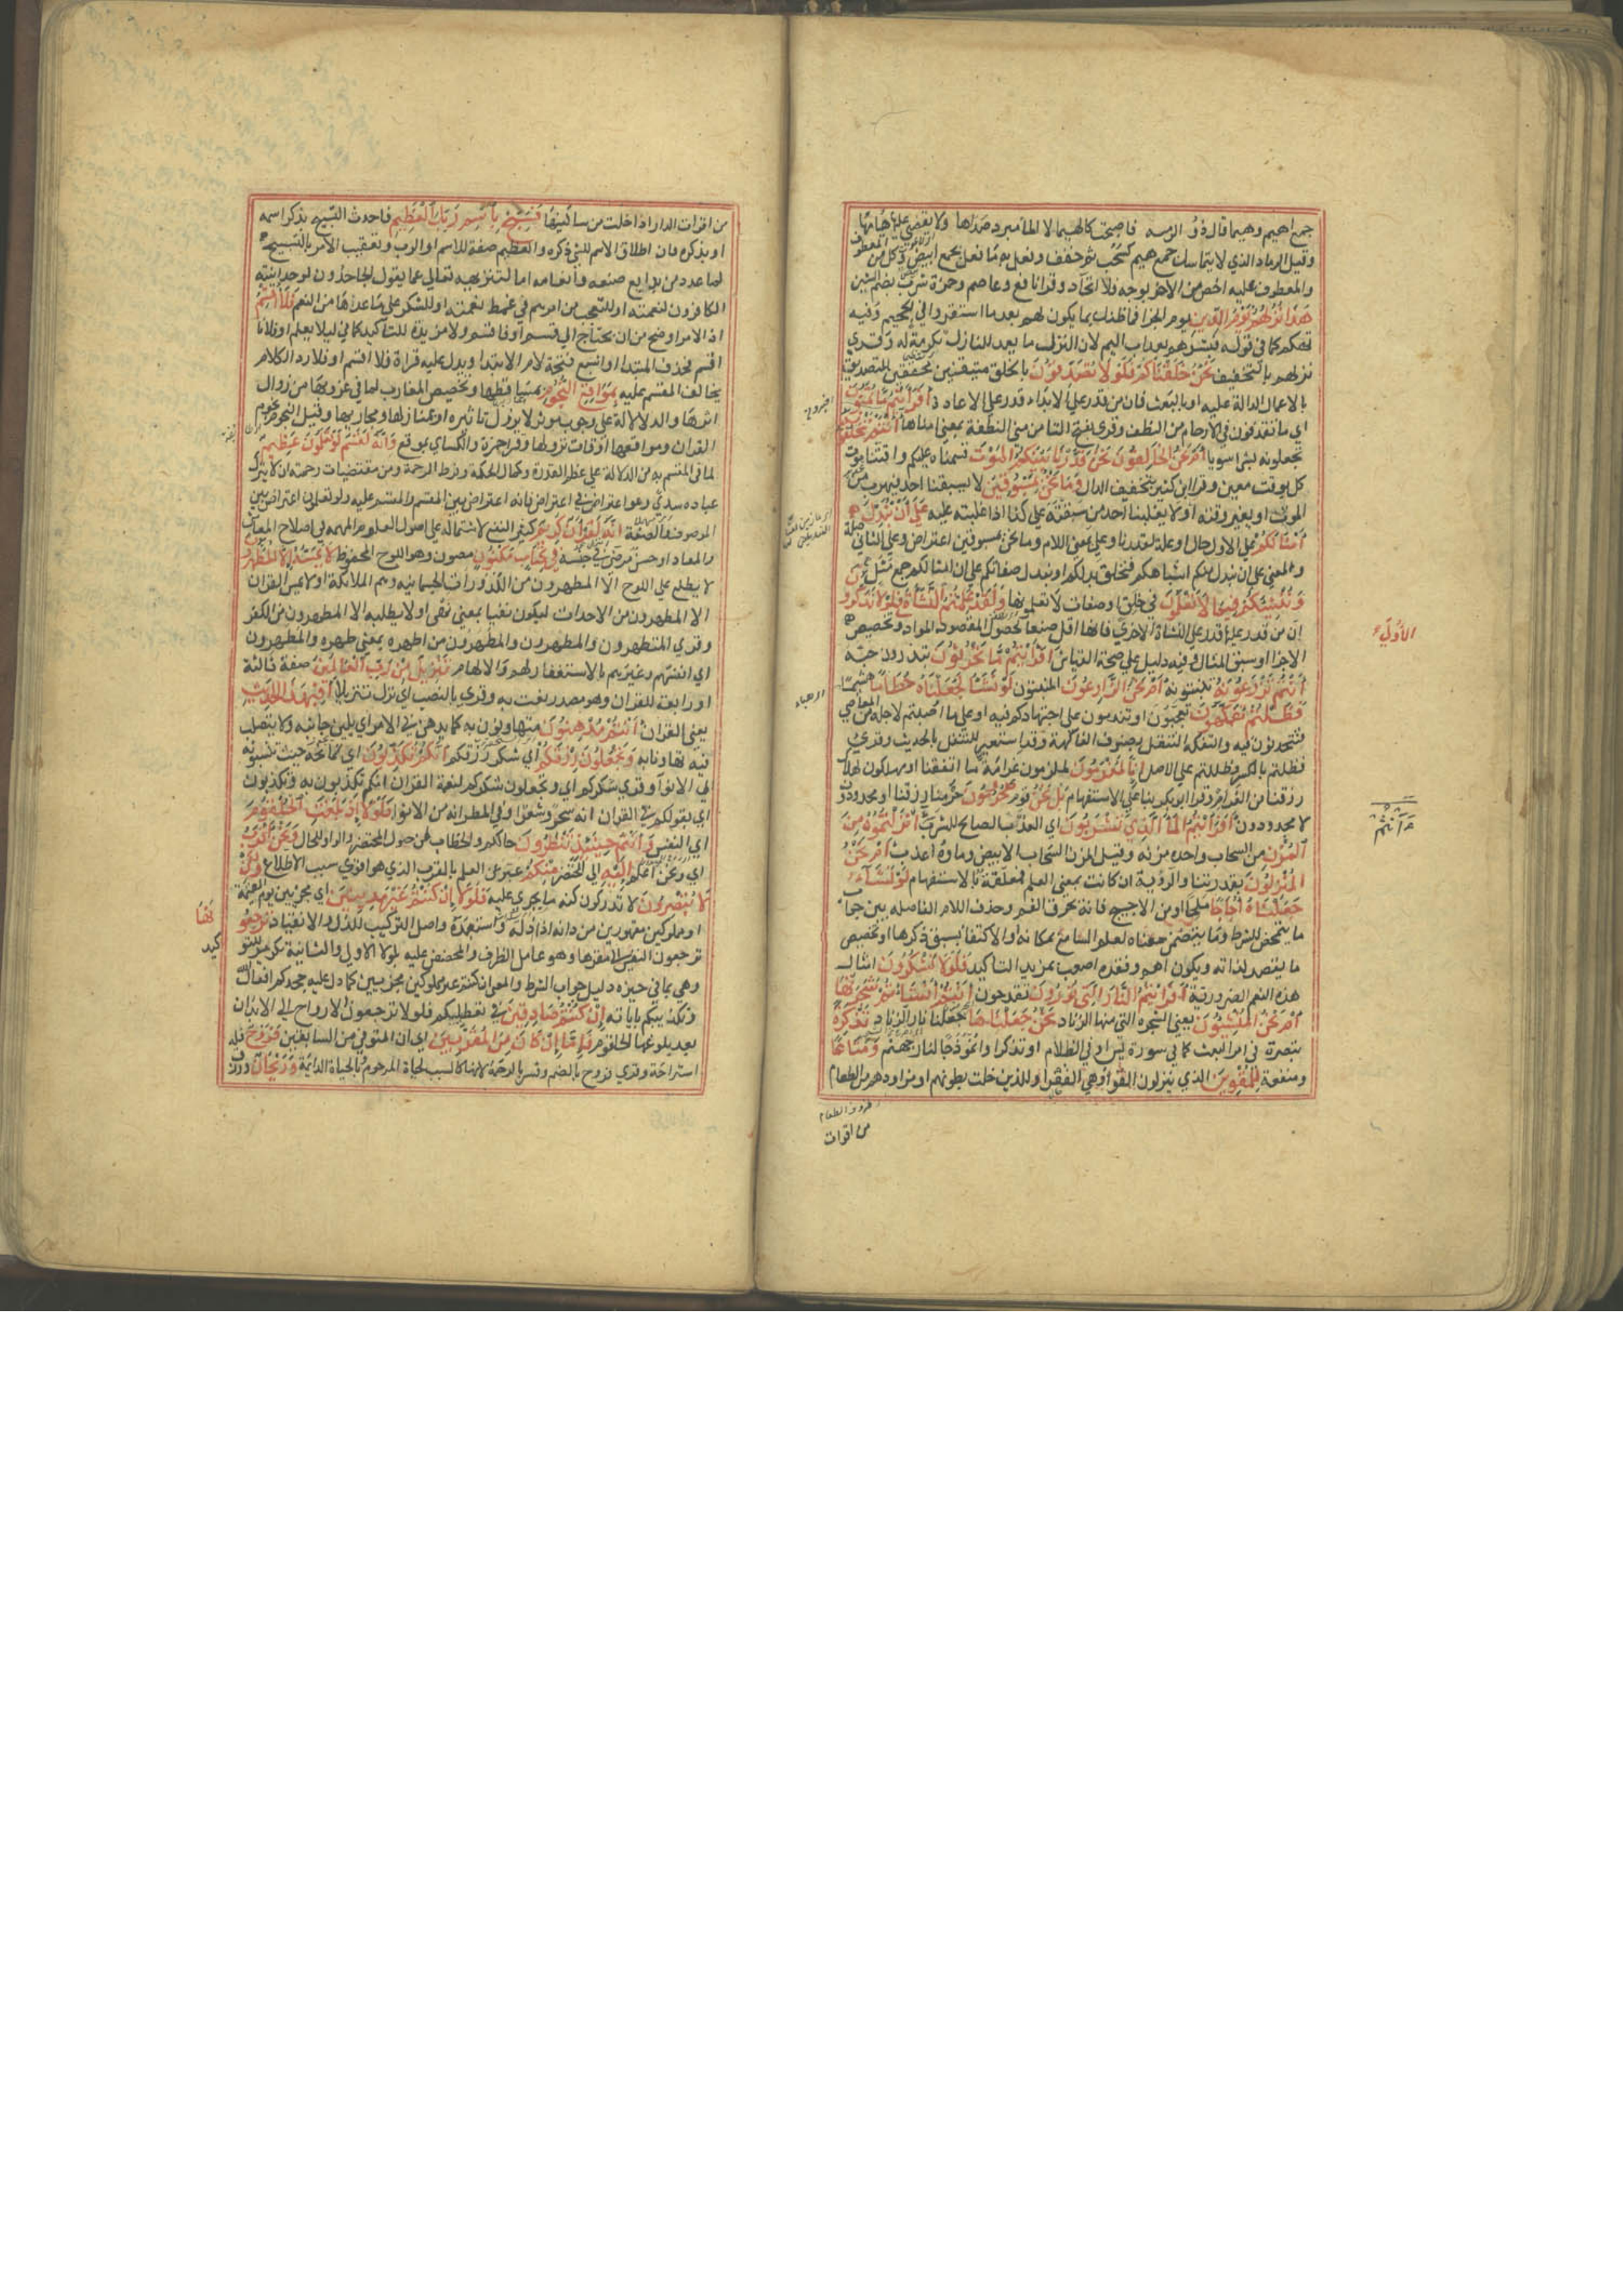 جمع اهيم وهيما قال ذو الرمة فاصبحت كالهيماء لا الماء مبرد صداها ولا يقضي عليها هيامها
وقيل الرمال الذي لا يتماسك جمع هيم كسحب ثم خفف وفعل به ما فعل بجمع ابيض وكل من المعطوف
والمعطوف عليه اخص من الاخر بوجه فلا اتحاد وقرا نافع وعاصم وحمزة شرب بضم الشين
هذا نزلهم يوم الدين يوم الجزا فما ظنك بما يكون لهم بعد ما استقروا في الجحيم وفيه
تهكم كما في قوله فبشرهم بعذاب اليم لان النزل ما يعد للنازل تكرمة له وقري
نزلهم بالتخفيف نحن خلقناكم فلولا تصدقون بالخلق متيقنين محققين للتصديق
بالاعمال الدالة عليه او بالبعث فان من قدر علي الابداء قدر علي الاعادة افرايتم ما تمنون
اي ما تقذفون في الارحام من النطف وقري بفتح التا من مني النطفة بمعني امناها اانتم تخلقونه
تجعلونه بشرا سويا ام نحن الخالقون نحن قدرنا بينكم الموت قسمناه عليكم واقتنا موت
كل بوقت معين وقرا ابن كثير بتخفيف الدال وما نحن بمسبوقين لا يسبقنا احد فيهرب من
الموت او يغير وقته او لا يغلبنا احد من سبقته علي كذا اذا غلبته عليه علي ان نبدل
امثالكم علي الاول حال او علة لقدرنا وعلي بمعني اللام وما نحن بمسبوقين اعتراض وعلي الثاني صلة
والمعني علي ان نبدل منكم اشباهكم فنخلق بدلكم او نبدل صفاتكم علي ان امثالكم جمع مثل
وننشئكم فيما لا تعلمون في خلق او صفات لا تعلمونها ولقد علمتم النشاة فلولا تذكرون
الاولي
ان من قدر عليها قدر علي النشاة الاخري فانها اقل صنعا لحصول المواد وتخصيص
الاجزا وسبق المثال وفيه دليل علي صحة القياس افرايتم ما تحرثون تبذرون حبه
اانتم تزرعونه تنبتونه ام نحن الزارعون المنبتون لو نشا لجعلناه حطاما هشيما
فظلتم تفكهون تعجبون او تندمون علي اجتهادكم فيه او علي ما اصبتم لاجله من المعاصي
فتتحدثون فيه والتفكه التنقل بصنوف الفاكهة وقد استعير للتنقل بالحديث وقري
فظلتم بالكسر وفظللتم علي الاصل انا لمغرمون لملزمون غرامة ما انفقنا او مهلكون لهلاك
رزقنا من الغرام وقرا ابوبكر اينا علي الاستفهام بل نحن قوم محرومون حرمنا رزقنا او محدودون
لا مجدودون افرايتم الما الذي تشربون اي العذب الصالح للشرب اانتم انزلتموه من
اانتم
المزن من السحاب واحده مزنة وقيل المزن السحاب الابيض وماوه اعذب ام نحن
المنزلون بقدرتنا والرؤية ان كانت بمعني العلم فمعلقة بالاستفهام لو نشاء
جعلناه اجاجا ملحا او من الاجيج فانه يحرق الفم وحذف اللام الفاصلة بين جواب
ما يتمحض للشرط وما يتضمن معناه لعلم السامع بمكانه او الاكتفا بسبق ذكرها او تخصيص
ما يقصد لذاته ويكون اهم وفقده اصعب بمزيد التاكيد فلولا تشكرون امثال
هذه النعم الضرورية افرايتم النار التي تورون تقدحون اانتم انشاتم شجرتها
ام نحن المنشئون يعني الشجرة التي منها الزناد نحن جعلناها جعلنا نار الزناد تذكرة
تبصرة في امر البعث كما في سورة يس او في الظلام او تذكرا وانموذجا لنار جهنم ومتاعا
ومنفعة للمقوين الذي ينزلون القوا وهي القفر او للذين خلت بطونهم او مزاودهم من الطعام
من اقوات
من اقوات الدار اذا خلت من ساكنيها فسبح باسم ربك العظيم فاحدث التسبيح بذكر اسمه
او بذكره فان اطلاق الاسم للشي ذكره والعظيم صفة للاسم او الرب وتعقيب الامر بالتسبيح
لما عدد من بدايع صنعه وانعامه اما لتنزيهه تعالي عما يقول الجاحدون لوحدانيته
الكافرون لنعمته او للتعجب من امرهم في غمط نعمته او للشكر علي ما عدها من النعم فلا اقسم
اذ الامر اوضح من ان يحتاج الي قسم او فاقسم ولا مزيدة للتاكيد كما في ليلا يعلم او فلانا
اقسم فحذف المبتدا واشبع فتحة لام الابتدا ويدل عليه قراة فلاقسم او فلا رد لكلام
يخالف المقسم عليه بمواقع النجوم بمساقطها وتخصيص المغارب لما في غروبها من زوال
اثرها والدلالة علي وجود موثر لا يزول تاثيره او بمنازلها ومجاريها وقيل النجوم نجوم
القران ومواقعها اوقات نزولها وقرا حمزة والكسائي بموقع وانه لقسم لو تعلمون عظيم
لما في المقسم به من الدلالة علي عظم القدرة وكمال الحكمة وفرط الرحمة ومن مقتضيات رحمته ان لا يترك
عباده سدي وهو اعتراض في اعتراض فانه اعتراض بين القسم والمقسم عليه ولو تعلمون اعتراض بين
الموصوف والصفة انه لقران كريم كثير النفع لاشتماله علي اصول العلوم المهمة في اصلاح المعاش
والمعاد او حسن مرضي في جنسه في كتاب مكنون مصون وهو اللوح المحفوظ لا يمسه الا المطهرون
لا يطلع علي اللوح الا المطهرون من الكدورات الجسمانية وهم الملائكة او لا يمس القران
الا المطهرون من الاحداث فيكون نفيا بمعني نهي او لا يطلبه الا المطهرون من الكفر
وقري المتطهرون والمطهرون والمطهرون من اطهره بمعني طهره والمطهرون
اي انفسهم وغيرهم بالاستغفار لهم والالهام تنزيل من رب العالمين صفة ثالثة
او رابعة للقران وهو مصدر نعت به وقري بالنصب اي نزل تنزيلا افبهذا الحديث
يعني القران انتم مدهنون متهاونون به كما يدهن في الامر اي يلين جانبه ولا يتصلب
فيه تهاونا به وتجعلون رزقكم اي شكر رزقكم انكم تكذبون اي بمانحه حيث تنسبونه
الي الانوا وقري شكركم اي وتجعلون شكركم لنعمة القران انكم تكذبون به وتكذبون
اي بقولكم في القران انه سحر وشعر او في المطر انه من الانوا فلولا اذا بلغت الحلقوم
اي النفس وانتم حينئذ تنظرون حالكم والخطاب لمن حول المحتضر والواو للحال ونحن اقرب
اي ونحن اعلم اليه الي المحتضر منكم عبر عن العلم بالقرب الذي هو اقوي سبب الاطلاع ولكن
لا تبصرون لا تدركون كنه ما يجري عليه فلولا ان كنتم غير مدينين اي مجزيين يوم القيمة
او مملوكين مقهورين من دانه اذا اذله واستعبده واصل التركيب للذل والانقياد ترجعونها
ترجعون النفس الي مقرها وهو عامل الظرف والمحضض عليه بلولا الاولي والثانية تكرير للتوكيد
وهي بما في حيزه دليل جواب الشرط والمعني ان كنتم غير مملوكين مجزيين كما دل عليه جحدكم افعال الله
وتكذيبكم باياته ان كنتم صادقين في تعطيلكم فلولا ترجعون الارواح الي الابدان
بعد بلوغها الحلقوم فاما ان كان من المقربين اي ان كان المتوفي من السابقين فروح فله
استراحة وقري فروح بالضم وفسر بالرحمة لانها كالسبب لحياة المرحوم بالحياة الدائمة وريحان ورزق